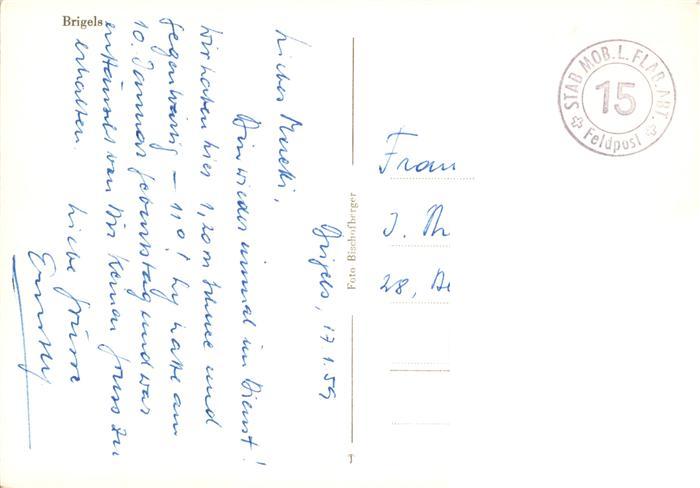 Brigels
Brigels, 17.1.59
Liebes Mucki,
Bin wieder einmal im Dienst!
Wir haben hier 1,20 m Schnee und
gegenwärtig – 11°! Ich hatte am
10. Januar Geburtstag und war
enttäuscht von Dir keinen Gruss zu
erhalten.
Liebe Grüsse
Foto Bischofberger
STAB MOB. L. FLAB. ABT.
15
Feldpost
Frau
J. Th
28, Av